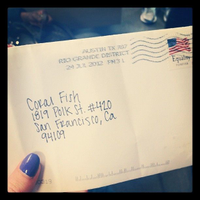 AUSTIN TX 787
RIO GRANDE DISTRICT
24 JUL 2012 PM 5 L
Equality
Coral Fish
1819 Polk St. #420
San Francisco, Ca
94109